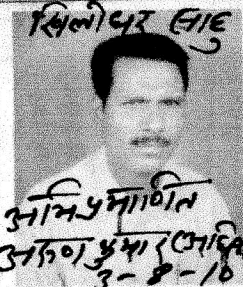 खिलोधर साहू
अभिप्रमाणित
अरुण कुमार
3-8-10